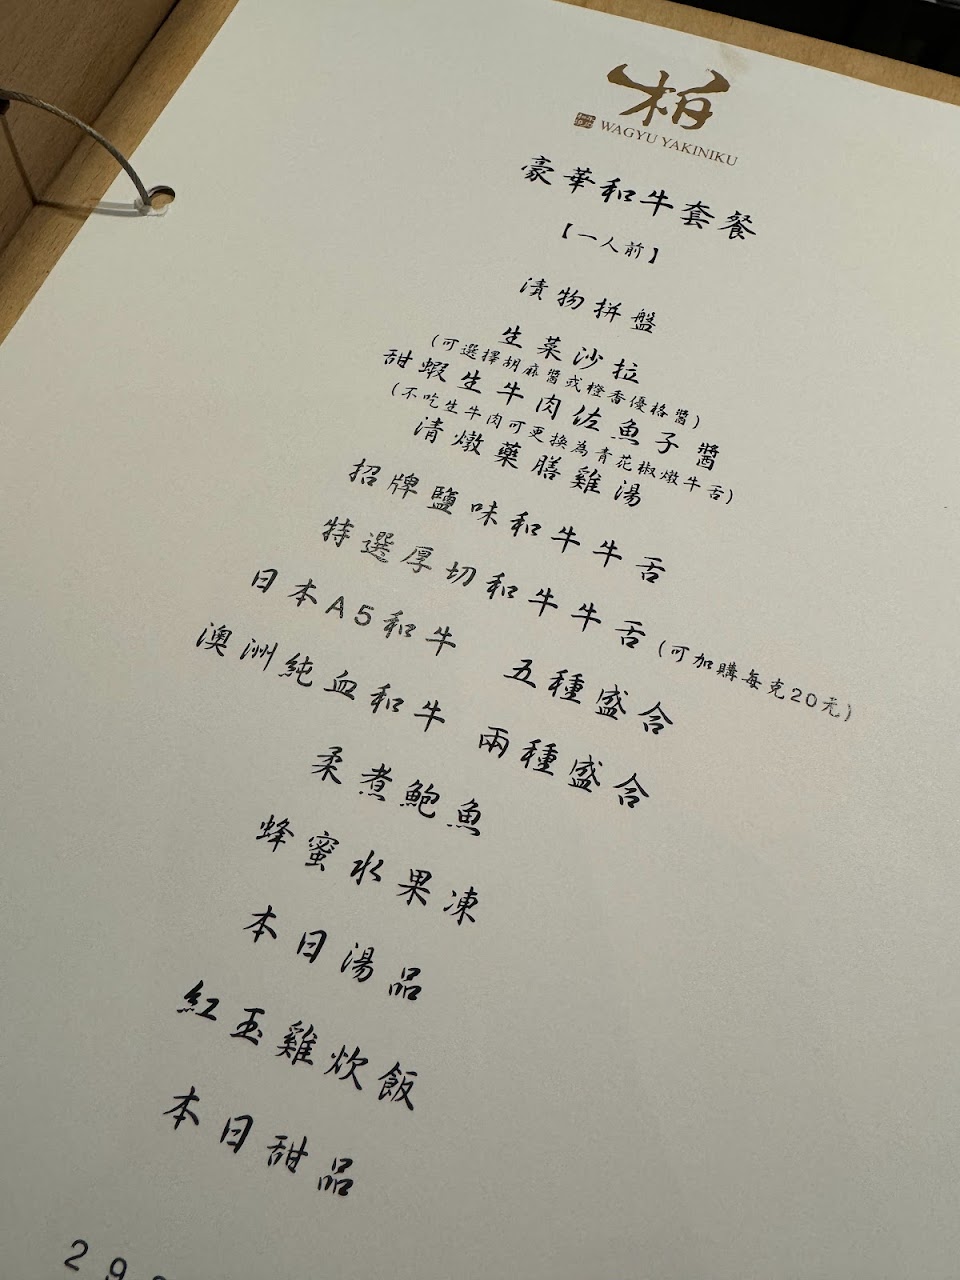 柏
WAGYU YAKINIKU
豪華和牛套餐
【一人前】
漬物拼盤
生菜沙拉
(可選擇胡麻醬或橙香優格醬)
甜蝦生牛肉佐魚子醬
(不吃生牛肉可更換為青花椒燉牛舌)
清燉藥膳雞湯
招牌鹽味和牛牛舌
特選厚切和牛牛舌(可加購每克20元)
日本A5和牛 五種盛合
澳洲純血和牛 兩種盛合
柔煮鮑魚
蜂蜜水果凍
本日湯品
紅玉雞炊飯
本日甜品
29